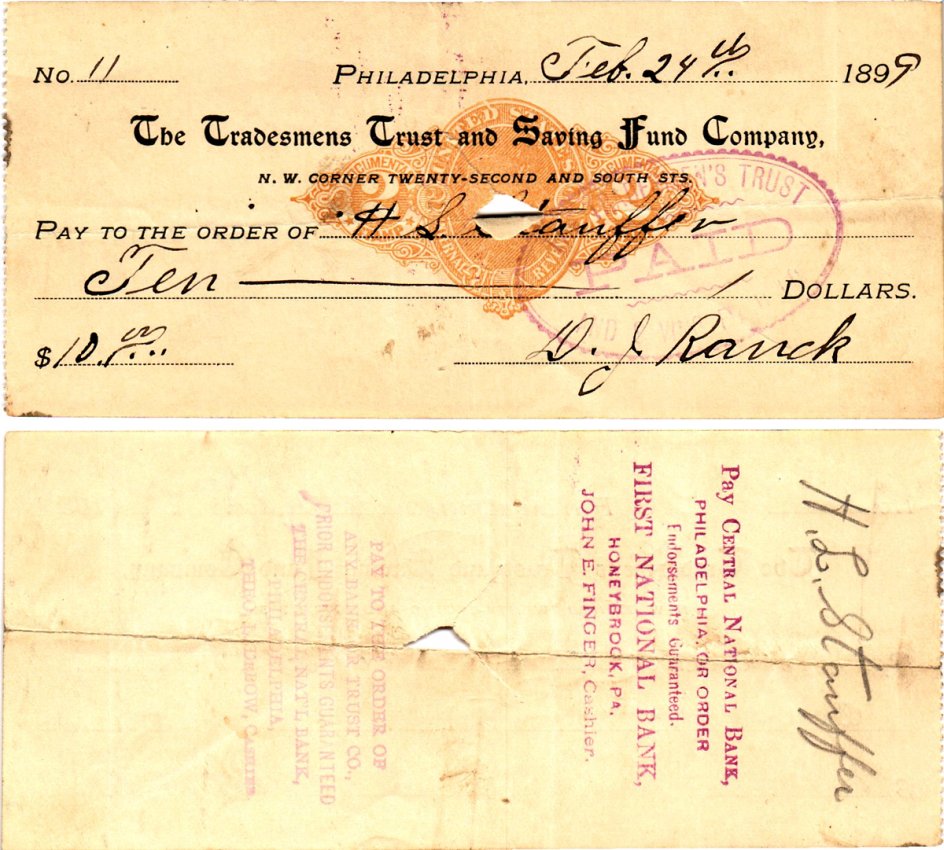 No. 11 PHILADELPHIA, Feb. 24th 1899
The Tradesmens Trust and Saving Fund Company,
N. W. CORNER TWENTY-SECOND AND SOUTH STS.
PAY TO THE ORDER OF H. L. Stauffer
Ten / DOLLARS.
$10.00 D. J. Ranck
TRUST
PAID
H. L. Stauffer
Pay CENTRAL NATIONAL BANK,
PHILADELPHIA, OR ORDER
Endorsements Guaranteed.
FIRST NATIONAL BANK,
HONEYBROOK, PA.
JOHN E. FINGER, Cashier.
PAY TO THE ORDER OF
ANY BANK OR TRUST CO.,
PRIOR ENDORSEMENTS GUARANTEED
THE CENTRAL NAT'L BANK,
PHILADELPHIA.
CASHIER